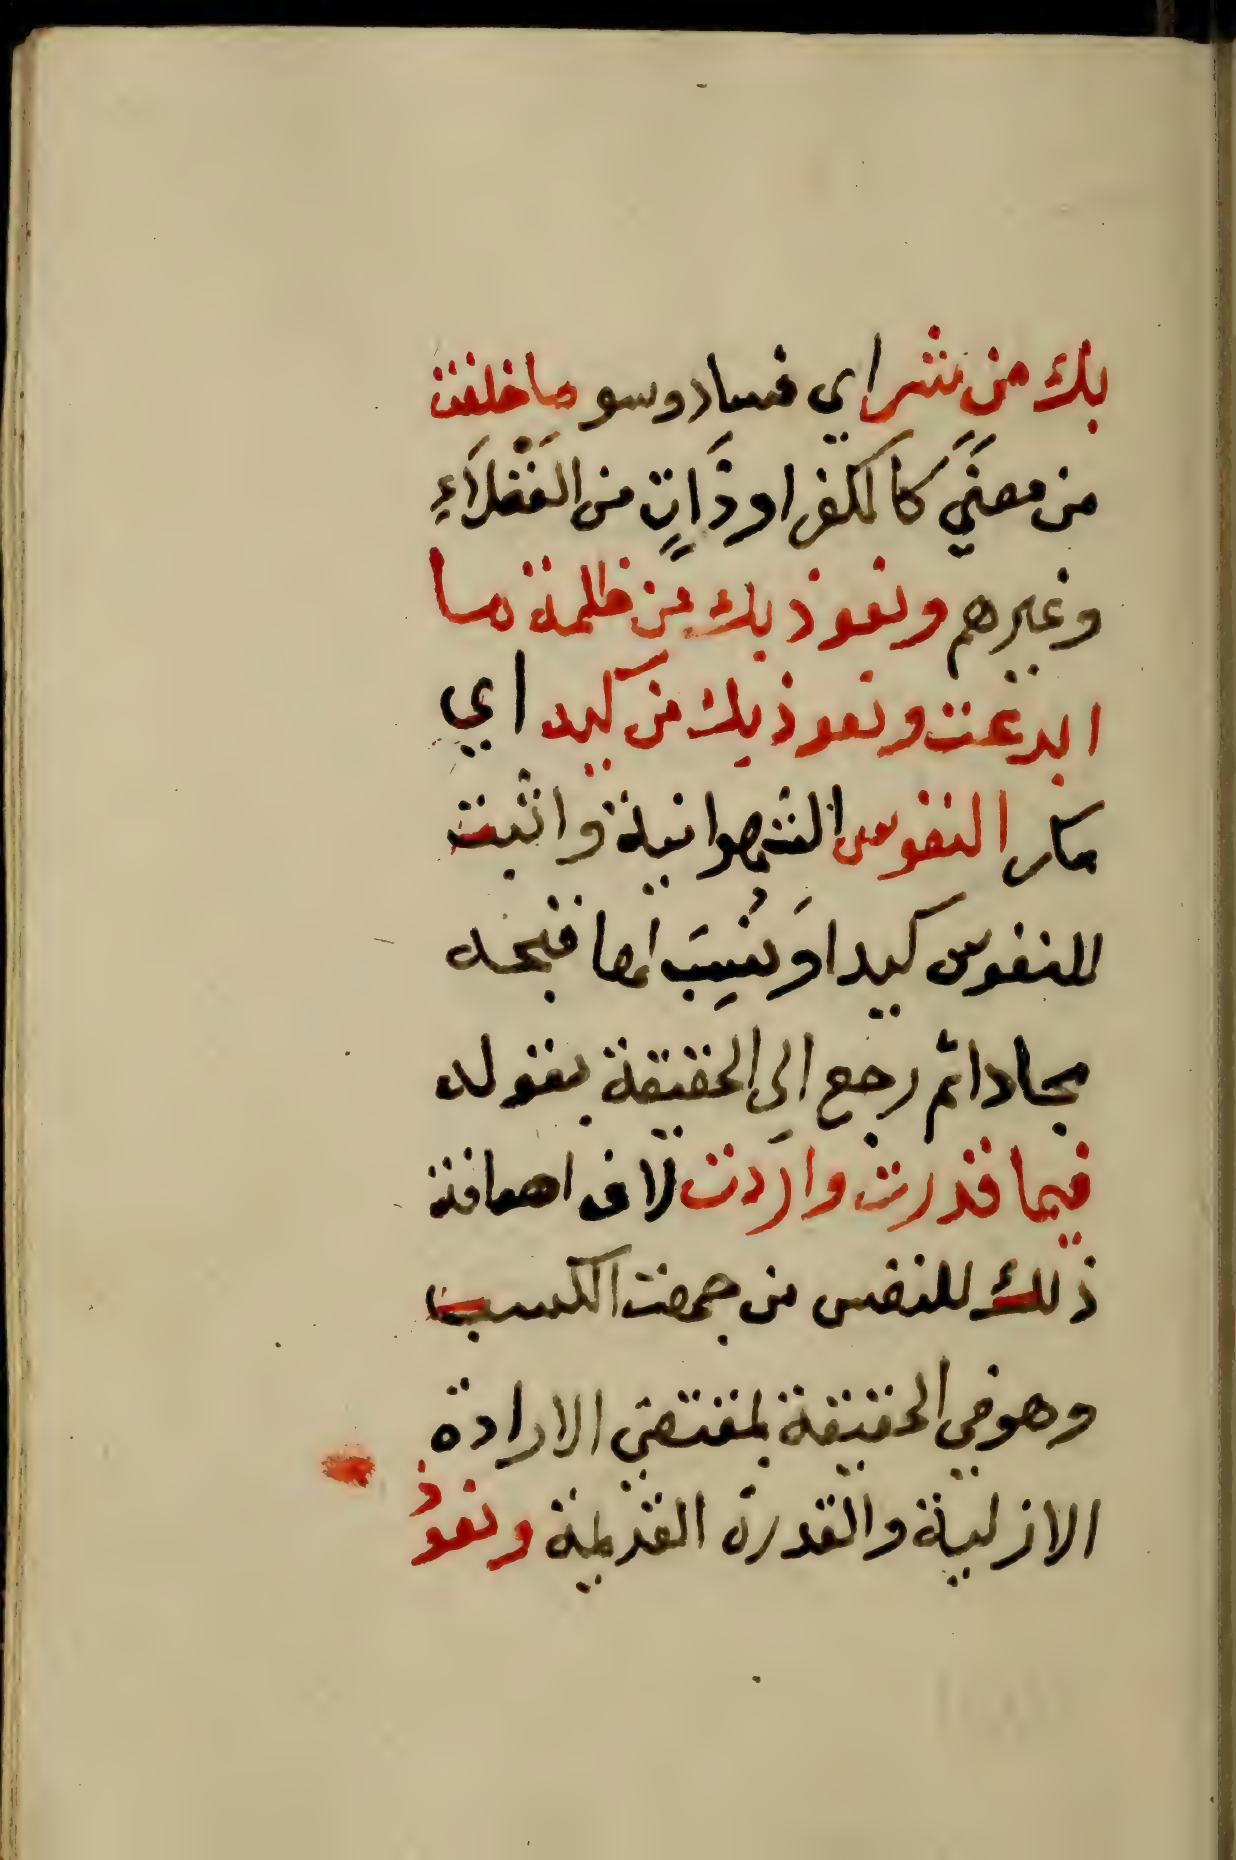 بك من شر اي فساد وسو ما خلقت
من معنًي كالكفر او ذَاتٍ من العُقَلَاءِ
وغيرهم ونعوذ بك من ظلمة ما
ابدعت ونعوذ بك من كيد اي
مكر النفوس الشهوانية واثبت
للنفوس كيدا ونُسِبَ لها قبحه
مجادا ثم رجع الِي الحقيقة بقوله
فيما قدرت واردت لان اضافة
ذلك للنفس من جهت الكسب
وهو في الحقيقة بمقتضي الارادة
الازلية والقدرة القديمة ونعوذ